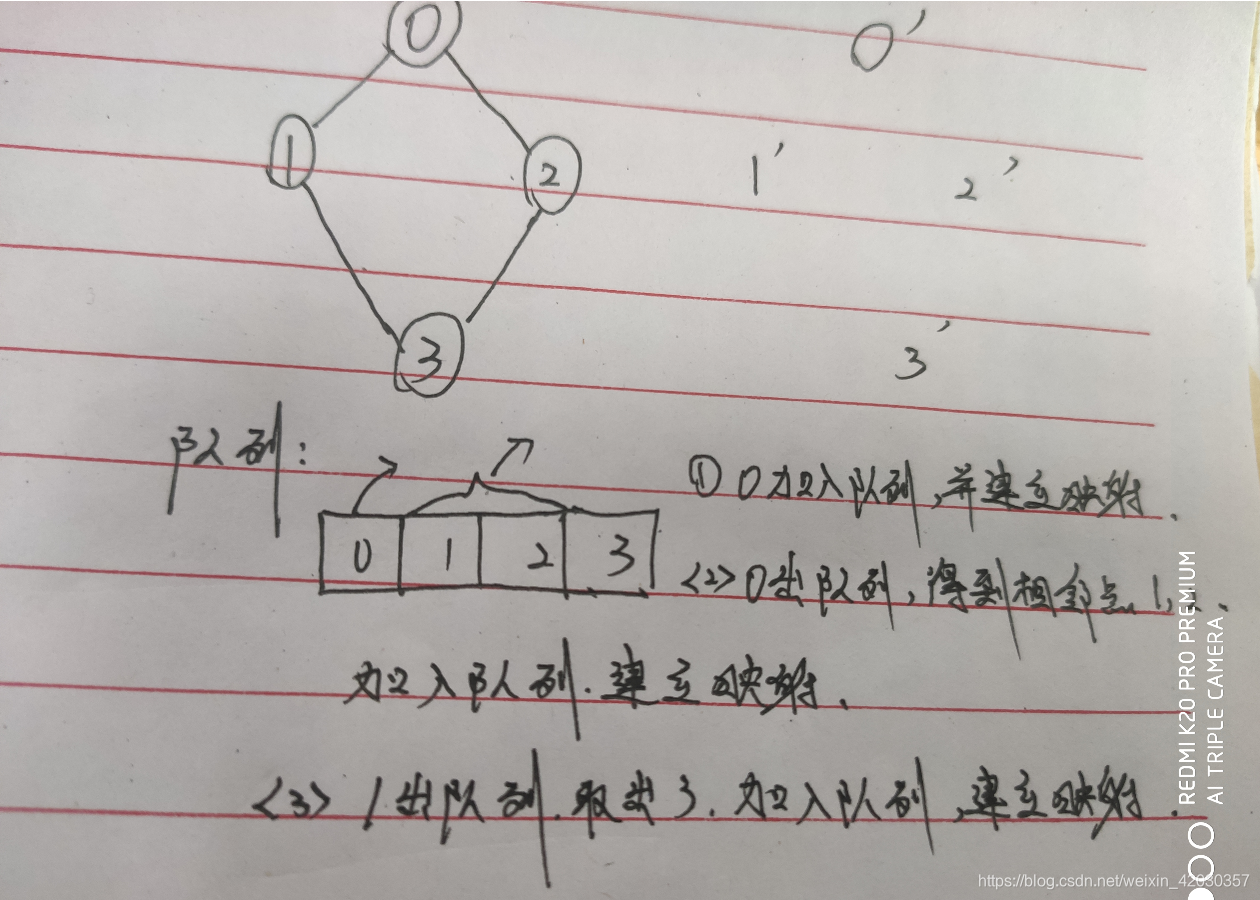 0 0′
1 2 1′ 2′
3 3′
队列:
0 1 2 3
① 0加入队列,并建立映射.
<2> 0出队列,得到相邻点 1,
加入队列.建立映射.
<3> 1出队列.取出3.加入队列,建立映射.
REDMI K20 PRO PREMIUM
AI TRIPLE CAMERA
https://blog.csdn.net/weixin_42030357